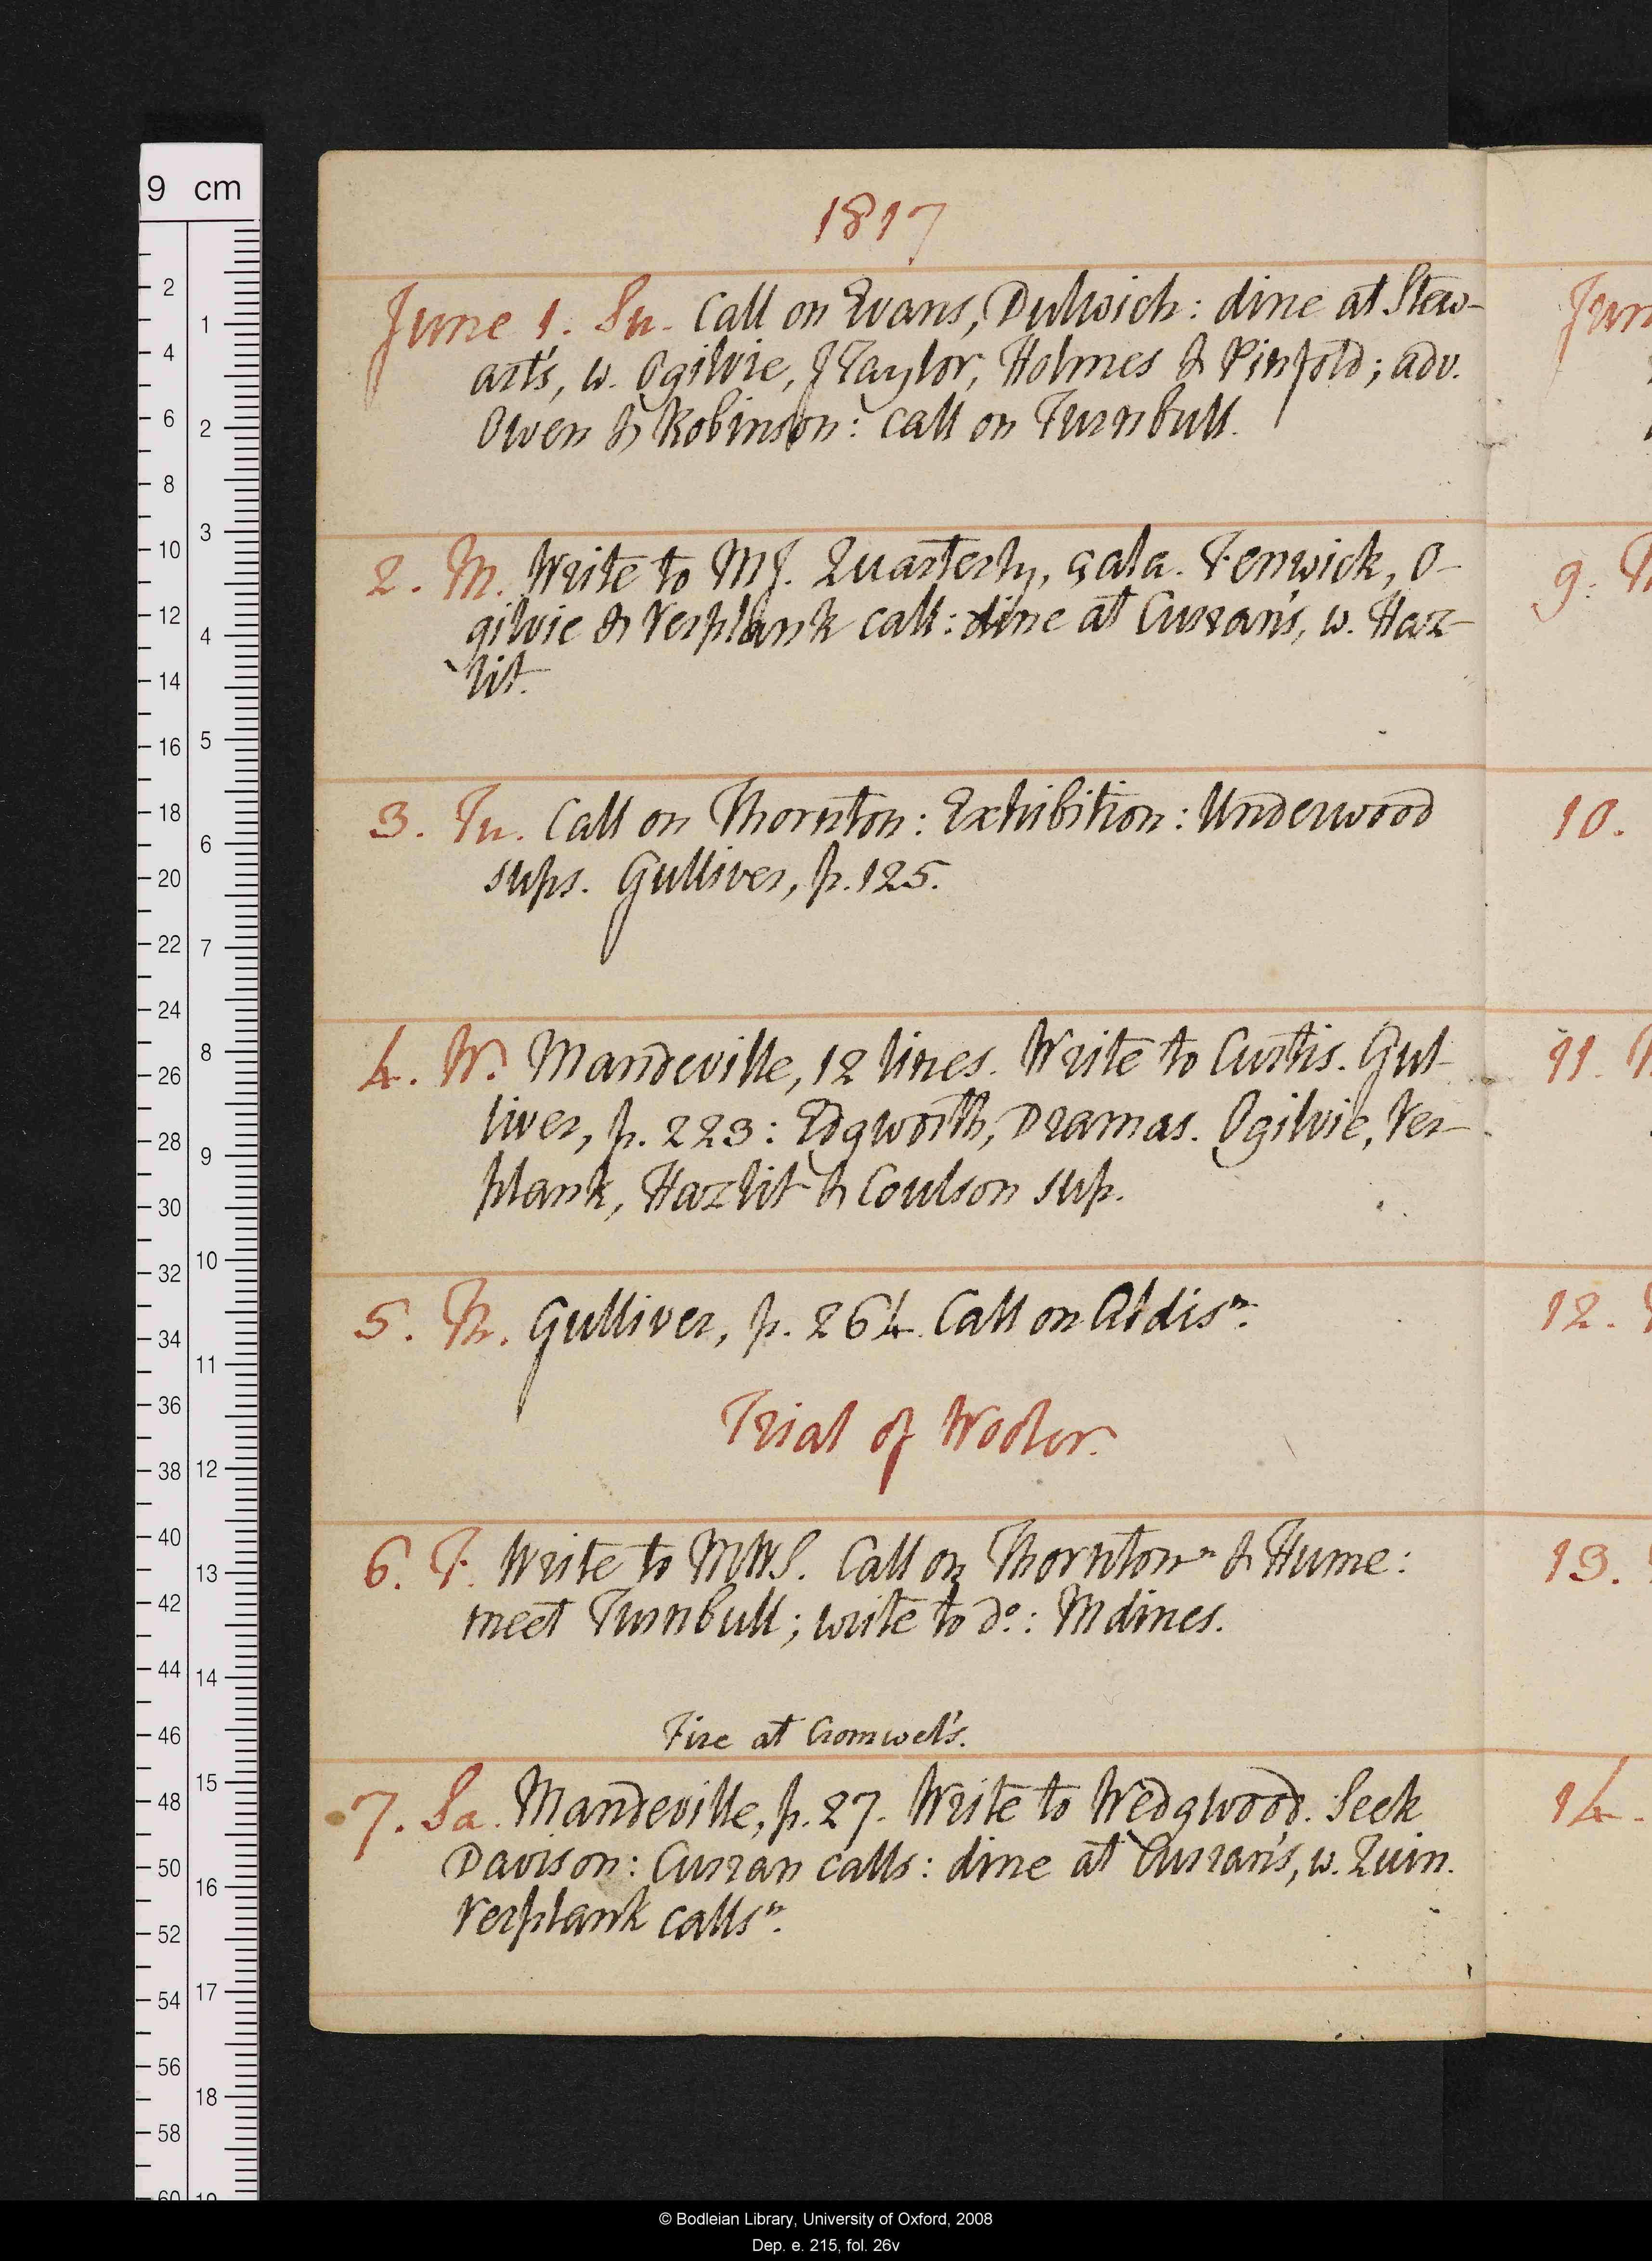 1817
June 1. Su. Call on Evans, Dulwich: dine at Stew-
art's, w. Ogilvie, J Taylor, Holmes & Pinfold; adv.
Owen & Robinson: call on Turnbull.
2. M. Write to MJ. Quarterly, çala. Fenwick, O-
gilvie & Verplank call: dine at Curran's, w. Haz-
lit.
3. Tu. Call on Thornton: Exhibition: Underwood
sups. Gulliver, p. 125.
4. W. Mandeville, 12 lines. Write to Curtis. Gul-
liver, p. 223: Edgworth, Dramas. Ogilvie, Ver-
plank, Hazlit & Coulson sup.
5. Th. Gulliver, p. 264. Call on Aldis n.
Trial of Wooler.
6. F. Write to MWS. Call on Thornton n & Hume:
meet Turnbull; write to do.: M dines.
Fire at Cromwel's.
7. Sa. Mandeville, p. 27. Write to Wedgwood. Seek
Davison: Curran calls: dine at Curran's, w. Quin.
Verplank calls n.
June
9.
10.
11.
12.
13.
14.
9 cm
2 4 6 8 10 12 14 16 18 20 22 24 26 28 30 32 34 36 38 40 42 44 46 48 50 52 54 56 58 60
1 2 3 4 5 6 7 8 9 10 11 12 13 14 15 16 17 18 19
© Bodleian Library, University of Oxford, 2008
Dep. e. 215, fol. 26v